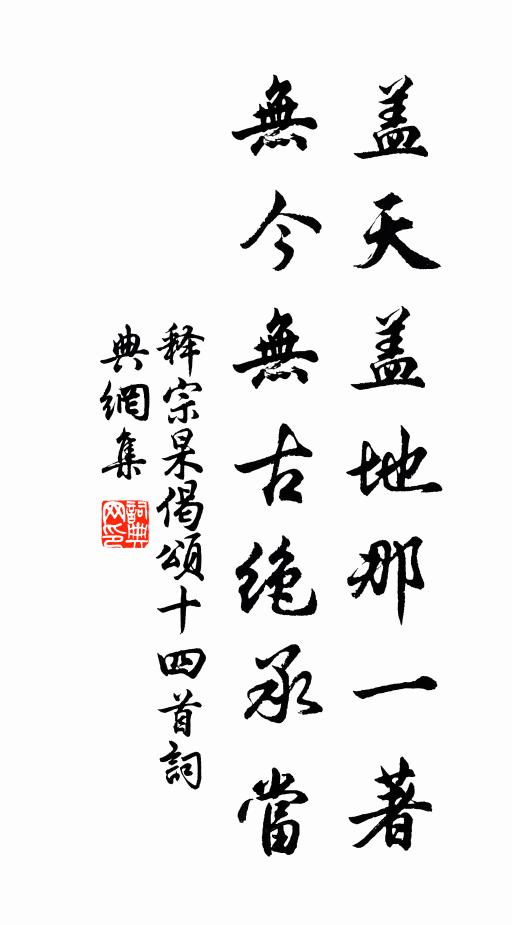 盖天盖地那一著
無今無古绝承當
释宗杲偈頌十四首詞
典網集
詞典
网印